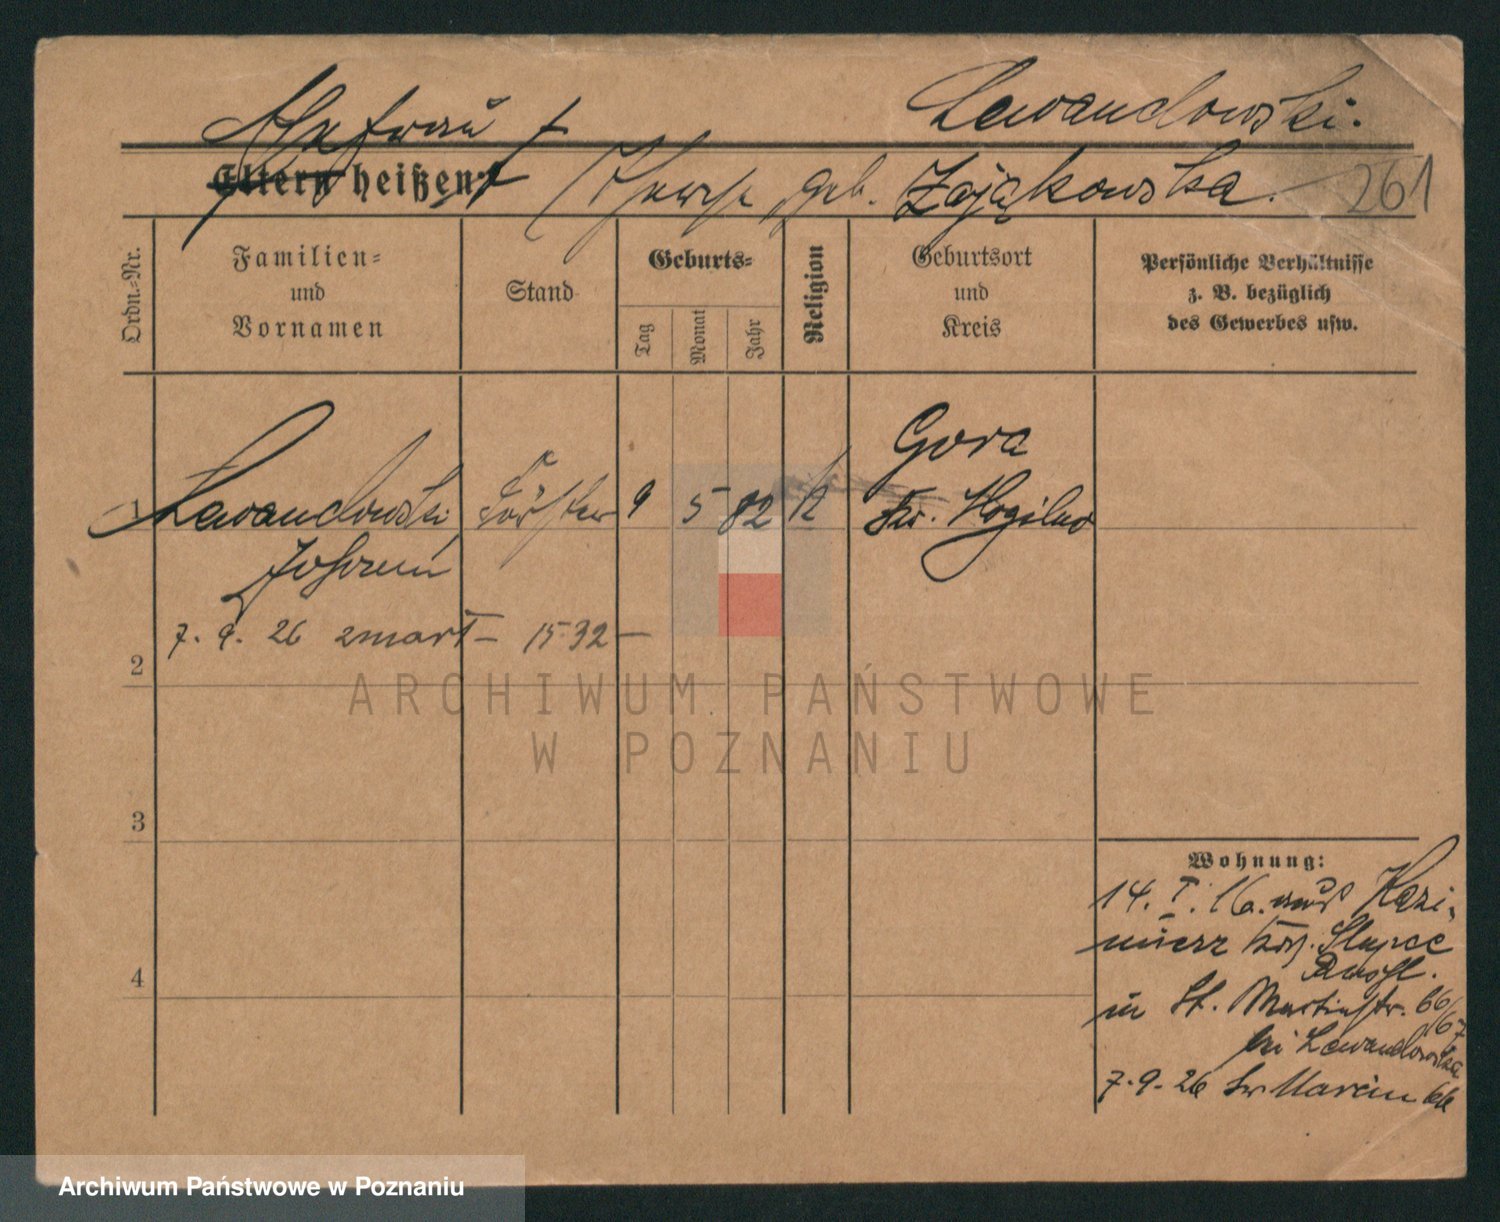 Lewandowski.
Ehefrau †
Eltern heißen: geb. Zająkowska. 261
Ordn.-Nr.
Familien-
und
Vornamen
Stand
Geburts-
Tag
Monat
Jahr
Religion
Geburtsort
und
Kreis
Persönliche Verhältnisse
z. B. bezüglich
des Gewerbes usw.
Gora
1 Lewandowski Förster 9 5 82 k Kr. Mogilno
Johann
7. 9. 26 zmarł – 1532 –
2
3
4
Wohnung:
14. I. 16. aus Kazi-
mierz Slupce
Russl.
in St. Martinstr. 66/67
bei Lewandowska
7.9.26 św. Marcin 66
ARCHIWUM PAŃSTWOWE
W POZNANIU
Archiwum Państwowe w Poznaniu